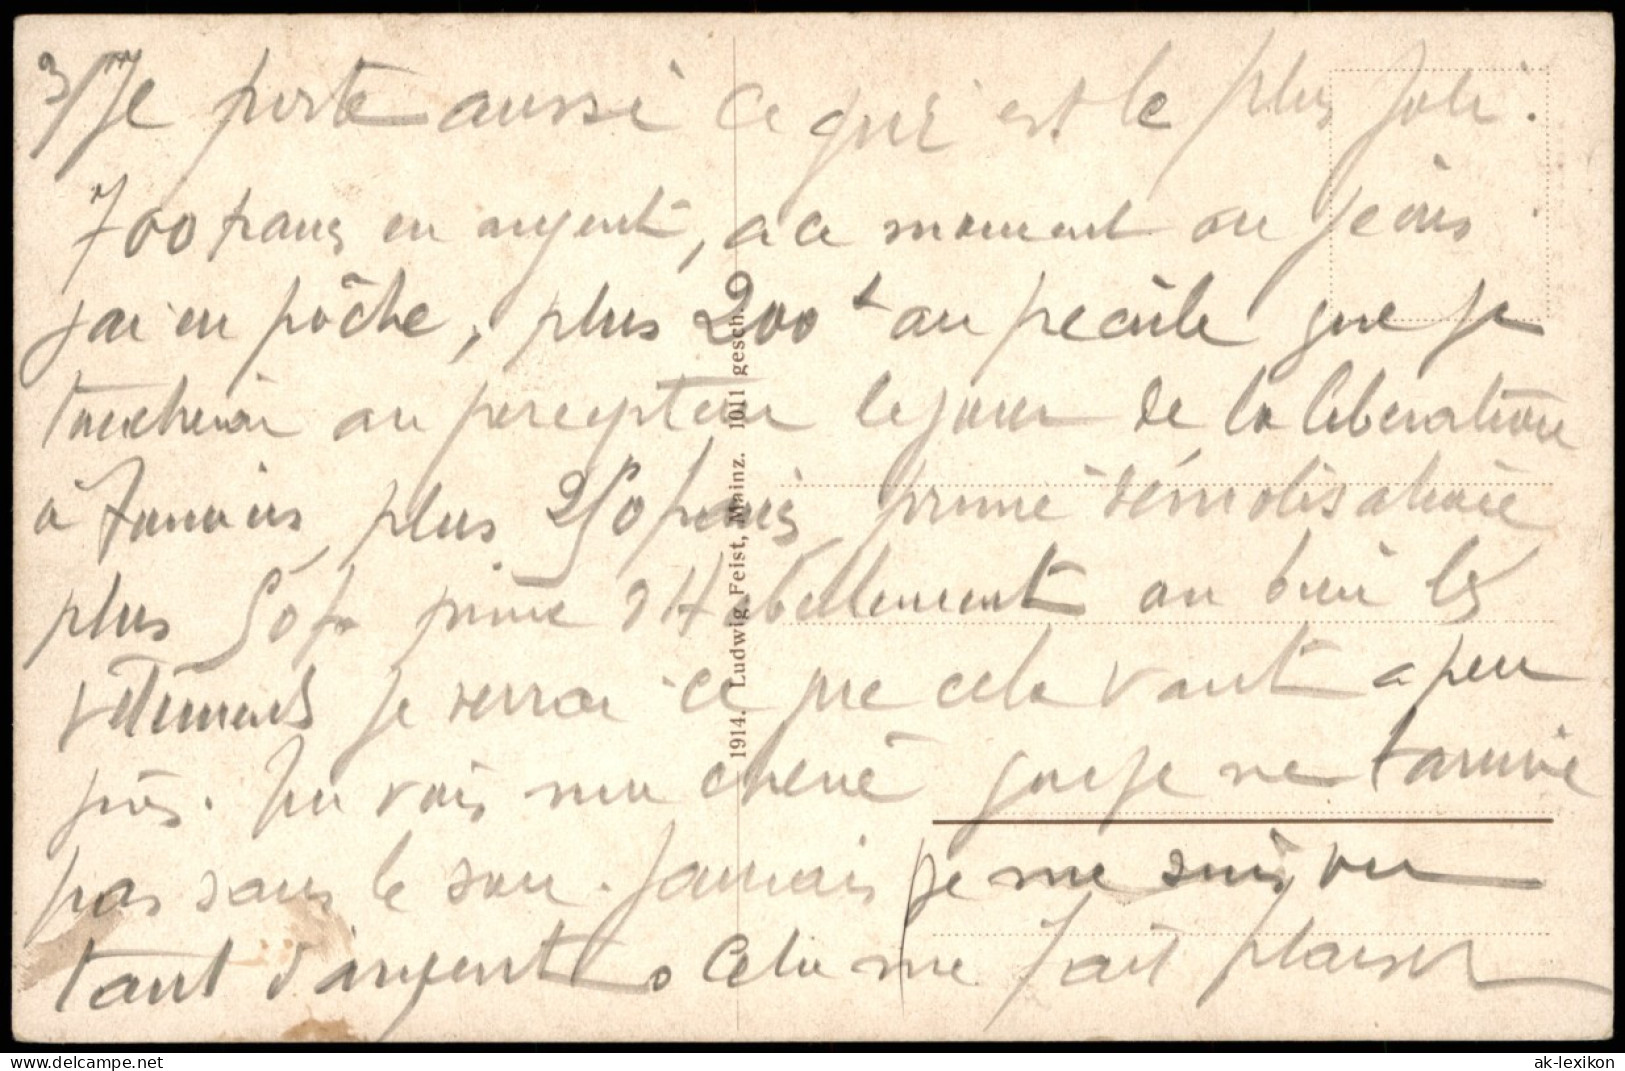 3/ Je porte aussi ce qui est le plus joli.
700 francs en argent, a ce moment ou je
j'ai en pôche, plus 200 f au pecule que je
toucherai au percepteur le jour de la liberation
à plus 250 francs prime démobilisation
plus 50 fr prime d'Habillement ou bien les
vêtements je verrai ce que cela vaut a peu
près. Tu vois ma cherie que je ne t'arrive
pas sans le sou. Jamais je me suis vu
tant d'argent. Cela me fait plaisir
1914. Ludwig Feist, Mainz. 1011 gesch.
delcampe.net
ak-lexikon